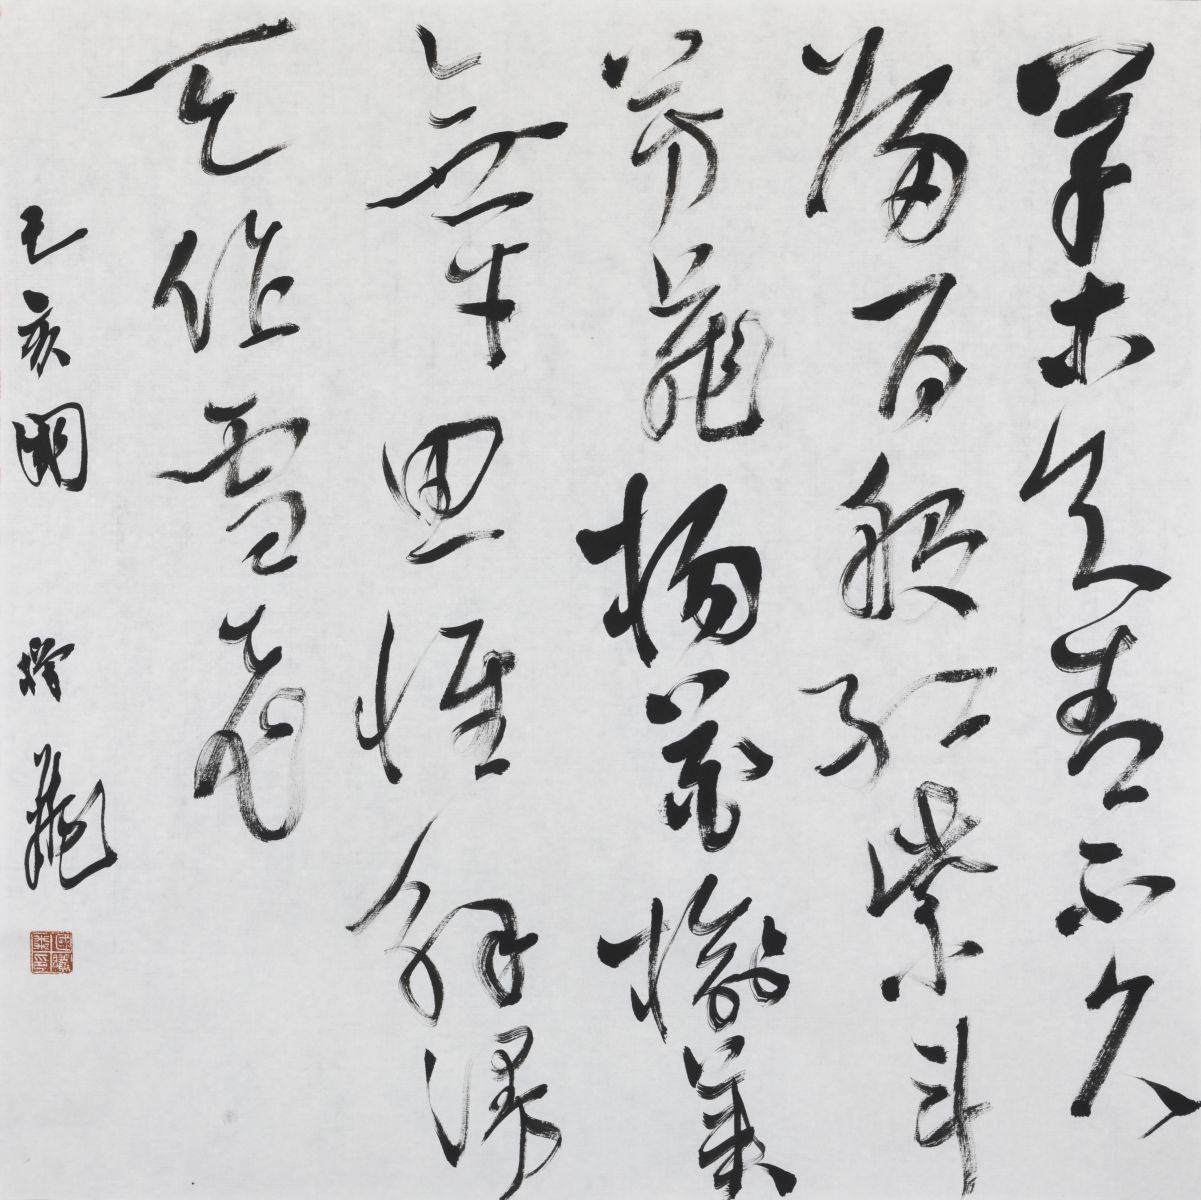 草木知春不久
歸百般紅紫斗
芳菲楊花榆莢
無才思惟解漫
天作雪飛
己亥